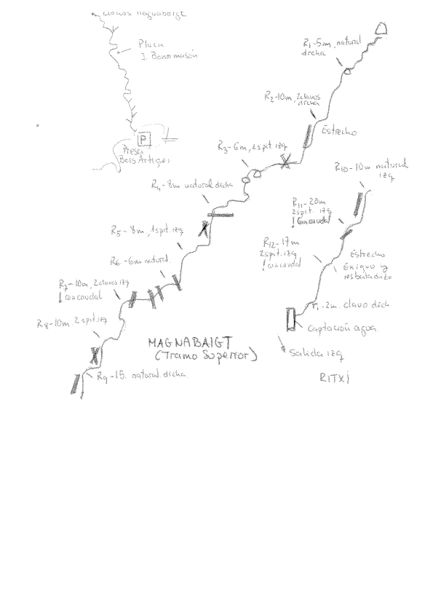 Placa
J. Bonomusón
P
Presa
Bois Artiges
R1-5m, natural
drcha
R2-10m, 2clavos
drcha
Estrecho
R3-6m, 2spit izq
R4-8m natural drcha
R5-8m, 1spit izq
R6-6m natural.
R7-10m, 2clavos izq
! con caudal
R8-10m 2spit izq
R9-15. natural drcha
MAGNABAIGT
(Tramo Superior)
R10-10m natural
izq
R11-20m
2spit. izq
! con caudal
R12-17m
2spit. izq
! con caudal
Estrecho
Exiguo y
resbaladizo
r. 2m clavo drch
Captación agua
Salida izq
RITXI